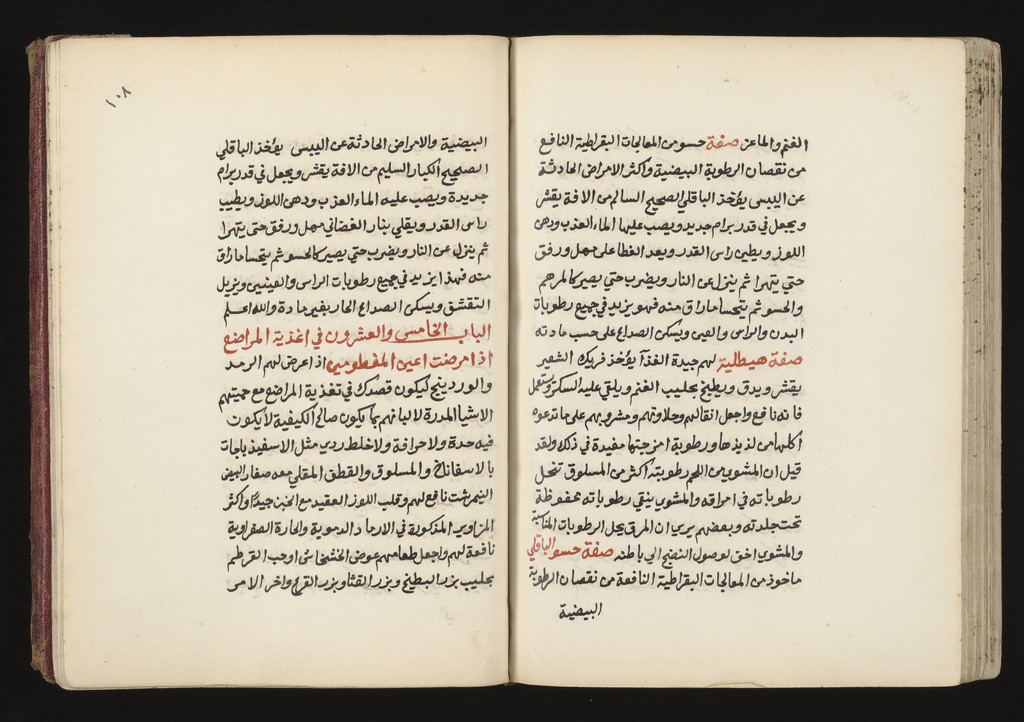 الغنم والماعز صفة حسو من المعالجات البقراطية النافع
من نقصان الرطوبة البيضية واكثر الامراض الحادثة
عن اليبس يؤخذ الباقلي الصحيح السالم من الافة يقشر
ويجعل في قدر برام جديد ويصب عليها الماء العذب ودهن
اللوز ويطين راس القدر ويعد الغطا على مهل ورفق
حتي يتهرا ثم ينزل عن النار ويضرب حتي يصير كالمرهم
والحسو ثم يتحسا ماراق منه فهو يزيد في جميع رطوبات
البدن والراس والعين ويسكن الصداع على حسب مادته
صفة هيطلية لهم جيدة الغذآ يؤخذ فريك الشعير
يقشر ويدق ويطبخ بحليب الغنم ويلقي عليه السكر ويستعمل
فانه نافع واجعل انقالهم وحلاوتهم ومشروبهم على ما تدعوه
اكلهما من لذيذها ورطوبة امزجتها مفيدة في ذلك ولقد
قيل ان المشوي من اللحم رطوبته اكثر من المسلوق تنحل
رطوباته في امراقه والمشوي ينقي رطوباته محفوظة
تحت جلدته وبعضهم يري ان المرق يحل الرطوبات
والمشوي اخق لوصول النضج الي باطنه صفة حسو الباقلي
ماخوذ من المعالجات البقراطية النافعة من نقصان الرطوبة
البيضية
١٠٨
البيضية والامراض الحادثة عن اليبس يؤخذ الباقلي
الصحيح الكبار السليم من الافة يقشر ويجعل في قدر برام
جديدة ويصب عليه الماء العذب ودهن اللوز ويطيب
راس القدر ويقلي بنار الغضا في مهل ورفق حتي يتهرا
ثم ينزل عن النار ويضرب حتي يصير كالحسو ثم يتحسا ماراق
منه فهذا يزيد في جميع رطوبات الراس والعينين ويزيل
التقشف ويسكن الصداع الحار بغير مادة والله اعلم
الباب الخامس والعشرون في اغذية المراضع
اذا مرضت اعين المفطومين اذا عرض لهم الرمد
والوردينج ليكون قصدك في تغذية المراضع مع حميتهم
الاشيا المدرة لالبانهم بما يكون صالح الكيفية لا يكون
فيه حدة ولا حرافة ولا خلط ردي مثل الاسفيذباجات
بالاسفاناخ والمسلوق والقطف المقلي معه صفار البيض
النيمرشت نافع لهم وقلب اللوز العقيد مع الخبز جيدا واكثر
المزاوير المذكورة في الارماد الدموية والحارة الصفراوية
نافعة لهم واجعل طعامهم عوض الخشخاش اوحب القرطم
بحليب بزر البطيخ وبزر القثا وبزر القرع واخر الامر